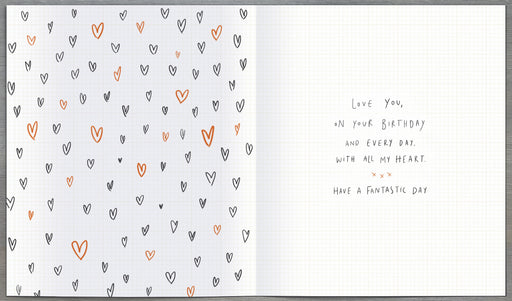 LOVE YOU,
ON YOUR BIRTHDAY
AND EVERY DAY.
WITH ALL MY HEART.
x x x
HAVE A FANTASTIC DAY